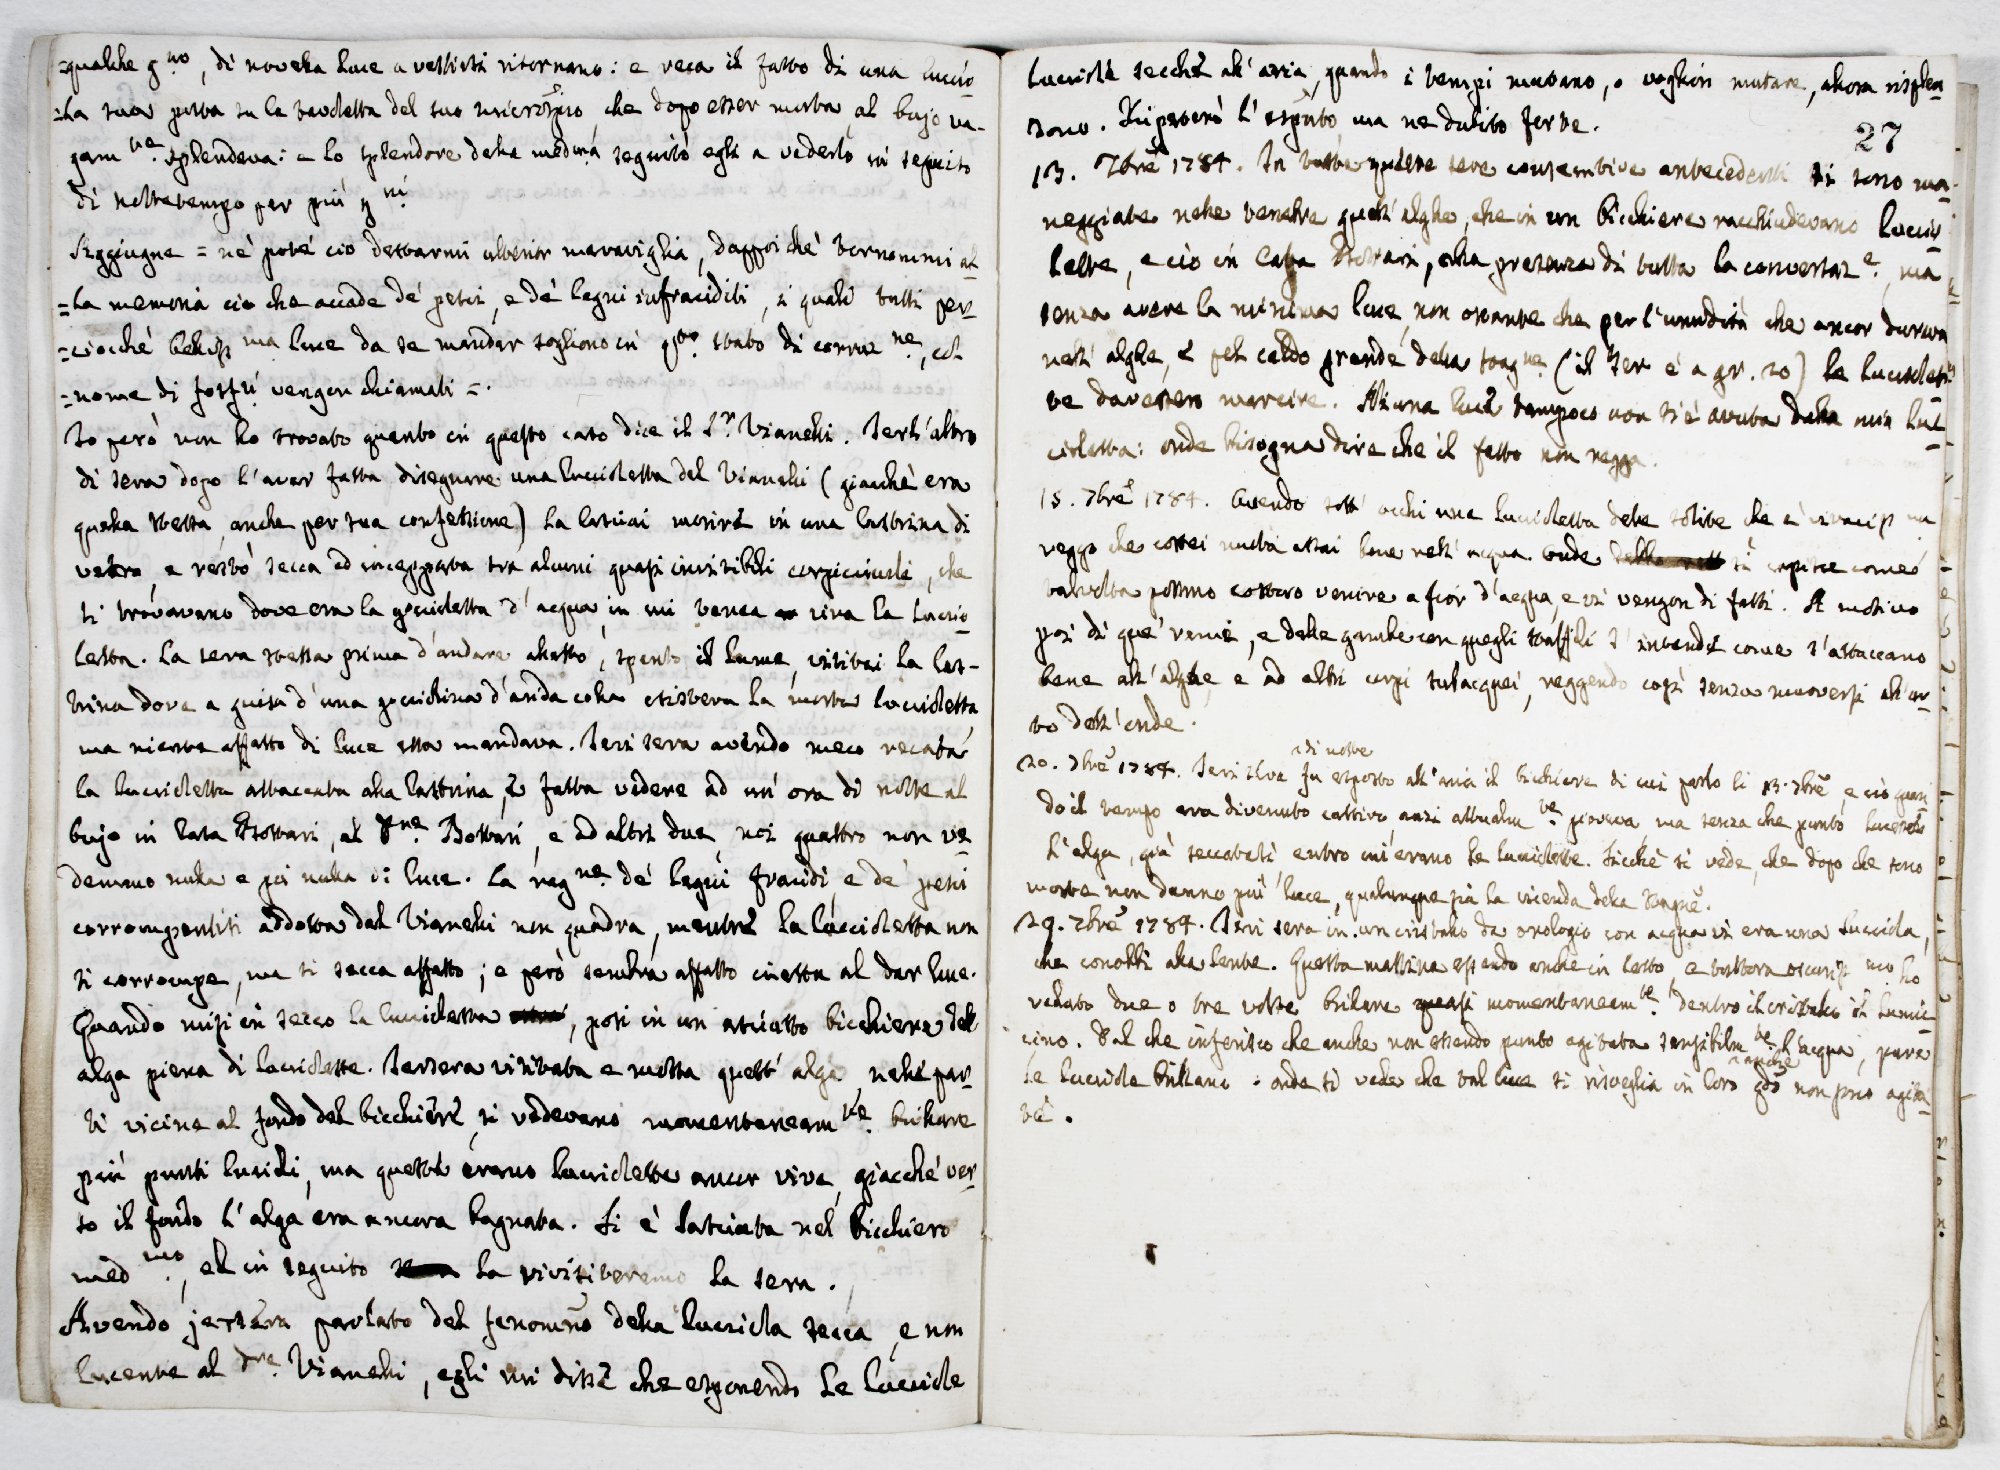 =qualche g.no, di novella luce a vestirsi ritornano: e reca il fatto di una luccio
=la sua posta su la tavoletta del suo microscopio che dopo esser morta al bujo va-
gam.te splendeva: e lo splendore della medma seguitò egli a vederlo in seguito
di nottetempo per più g.ni
Soggiugne = nè potè ciò destarmi ulterior maraviglia, dappoichè tornommi al
=la memoria ciò che accade de' pesci, e de' legni infraciditi, i quali tutti per
=ciocchè bellis.ma luce da se mandar sogliono in q.to stato di corruz.ne, col
=nome di fosfori vengon chiamati =.
Io però non ho trovato quanto in questo caso dice il S.r Vianelli. Jerl'altro
di sera dopo l'aver fatta disegnare una luccioletta del Vianelli (giacchè era
quella stessa, anche per sua confessione) la lasciai morire in una lastrina di
vetro, e restò secca ed inceppata tra alcuni quasi invisibili corpicciuoli, che
si trovavano dove era la goccioletta d'acqua, in cui tenea viva la luccio
letta. La sera stessa prima d'andare a letto, spento il lume, visitai la las-
trina dove a guisa d'una gocciolina d'arida colla esisteva la morta luccioletta
ma niente affatto di luce essa mandava. Jeri sera avendo meco recata
la luccioletta attaccata alla lastrina, e fatta vedere ad un' ora di notte al
bujo in Casa Bottari, al S.ne Bottari, e ad altri due noi quattro non ve
demmo nulla e poi nulla di luce. La rag.ne de' legni fracidi, e de' pesci
corrompentisi addotta dal Vianelli non quadra, mentre la luccioletta non
si corrompe, ma si secca affatto; e però sembra affatto inetta al dar luce.
Quando misi in secco la luccioletta, posi in un asciutto bicchiere dell'
alga piena di lucciolette. Jersera visitata e mossa quest' alga, nelle par
ti vicine al fondo del bicchiere, si vedevano momentaneam.te brillare
più punti lucidi, ma queste erano lucciolette ancor vive, giacchè ver
so il fondo l'alga era ancora bagnata. Si è lasciata nel bicchiero
med.mo, ed in seguito la rivisiteremo la sera.
Avendo jersera parlato del fenomeno della lucciola secca, e non
lucente al D.re Vianelli, egli mi disse che esponendo le lucciole
lucciole secche all'aria, quando i tempi mutano, o voglion mutare, allora risplen
dono. Ripeterò l'esperto, ma ne dubito forte.
27
13. 7bre 1784. In tutte queste sere consecutive antecedenti si sono ma-
neggiate nelle tenebre quest' alghe, che in un bicchiere racchiudevano luccio
lette, e ciò in Casa Bottari, alla presenza di tutta la conversaz.e, ma
senza avere la minima luce, non ostante che per l'umidità che ancor durava
nell' alghe, e pel caldo grande della stag.ne (il Ter è a gr. 20) le lucciolet
te dovessero marcire. Alcuna luce tampoco non si è avuta dalla mia luc
cioletta: onde bisogna dire che il fatto non regga.
15. 7bre 1784. Avendo sott' occhi una luccioletta delle solite che è vivacis.ma
veggo che costei nuota assai bene nell' acqua. Onde si capisce come
talvolta possono costoro venire a fior d'acqua, e vi vengon di fatti. A motivo
poi di que' remi, e delle gambe con quegli staffili s' intende come s' attaccano
bene all' alghe e ad altri corpi subacquei, reggendo così senza muoversi all'ur
to dell'onde.
20. 7bre 1784. Jeri sera di notte fu esposto all'aria il bicchiere di cui parlo li 13. 7bre, e ciò quan
do il tempo era divenuto cattivo, anzi attualm.te pioveva, ma senza che punto lucesse
l'alga, già seccatasi, entro cui erano le lucciolette. Sicchè si vede, che dopo che sono
morte non danno più luce, qualunque sia la vicenda della stagne.
29. 7bre 1784. Jeri sera in un cristallo da orologio con acqua vi era una lucciola,
che conobbi alla lente. Questa mattina essendo anche in letto, e tuttora oscuris.mo ho
veduto due o tre volte brillare quasi momentaneam.te dentro il cristallo il lumi-
cino. Dal che inferisco che anche non essendo punto agitata sensibilm.te l'acqua, pure
le lucciole brillano: onde si vede che tal luce si risveglia in loro anche qdo non sono agita
te.